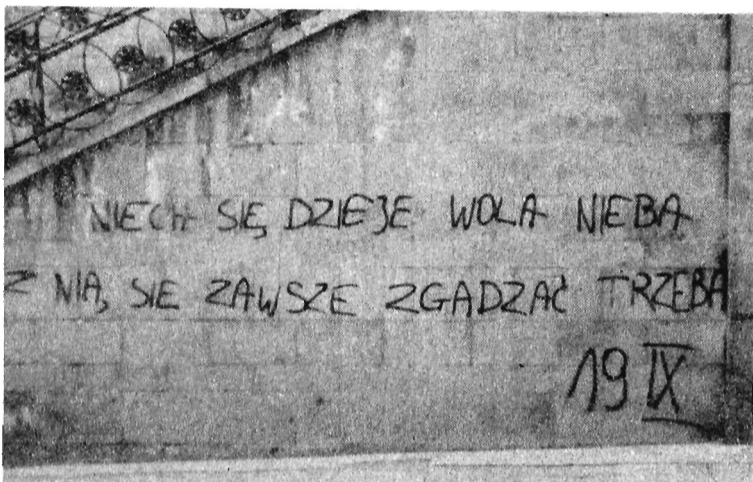 NIECH SIĘ DZIEJE WOLA NIEBA
Z NIĄ SIE ZAWSZE ZGADZAĆ TRZEBA
19 IX